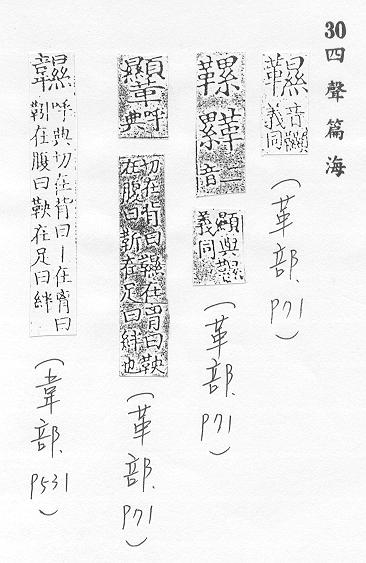 30 四聲篇海
韅音韅義同(革部.P71)
二音顯與義同(革部.P71)
呼典切在背曰韅在胷曰鞅在腹曰靳在足曰絆也(革部.P71)
呼典切在背曰丨在胷曰靷在腹曰鞅在足曰絆(韋部.P531)